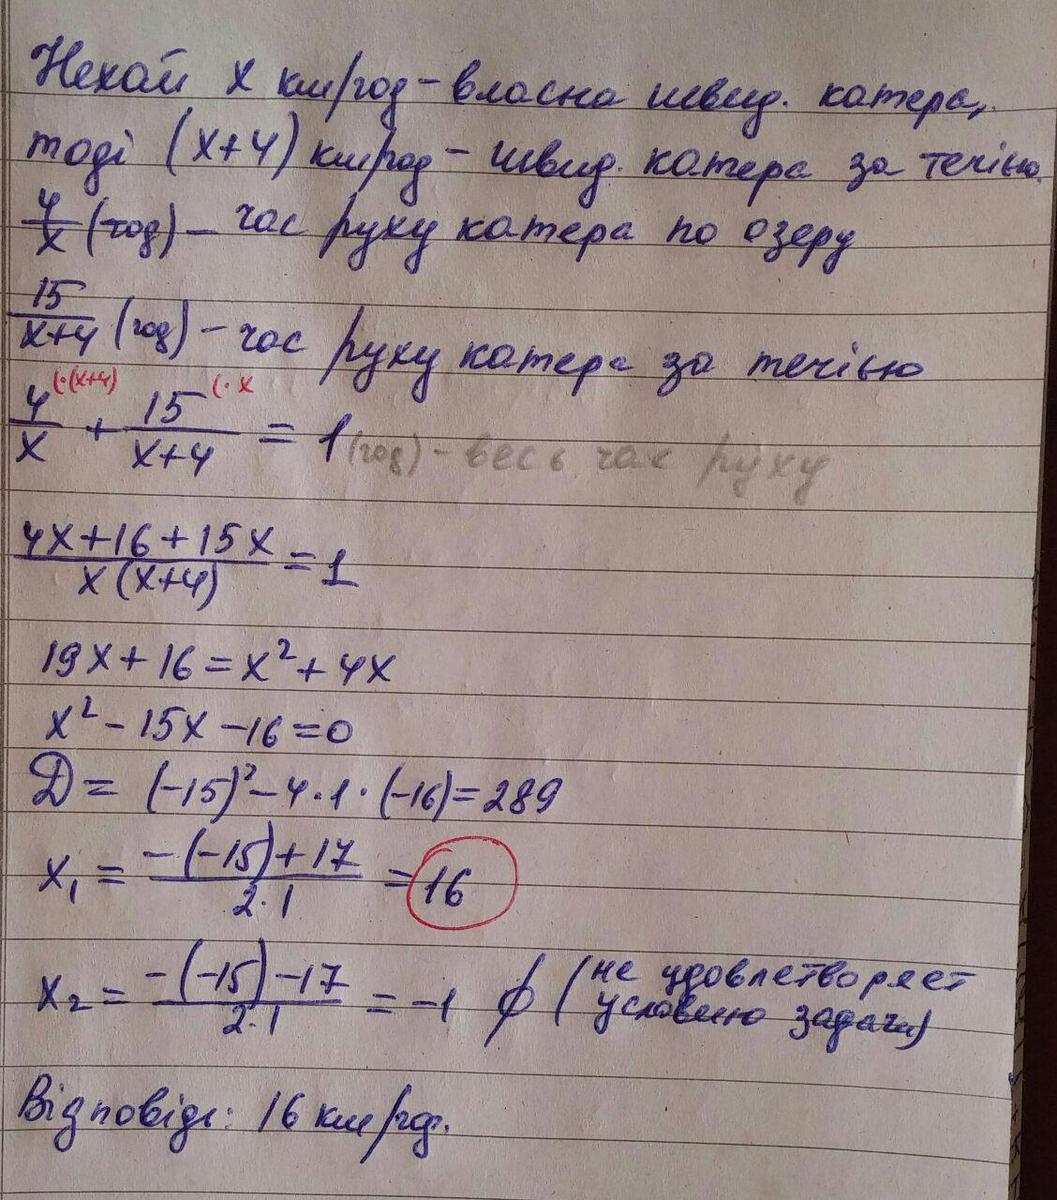 Нехай x км/год - власна швид. катера,
тоді (x+4) км/год - швид. катера за течією.
4/x (год) - час руху катера по озеру
15/(x+4) (год) - час руху катера за течією
4/x (·(x+4) + 15/(x+4) (·x = 1 (год) - весь час руху
(4x+16+15x)/(x(x+4)) = 1
19x+16=x²+4x
x²-15x-16=0
D= (-15)²-4·1·(-16)=289
x₁ = (-(-15)+17)/(2·1) = 16
x₂ = (-(-15)-17)/(2·1) = -1 ∅ (не удовлетворяет
условию задачи)
Відповідь: 16 км/год.